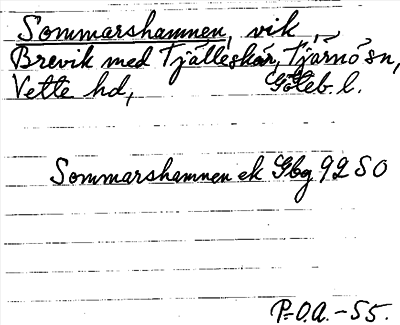 Sommarshamnen, vik
Brevik med Tjälleskär, Tjärnö sn,
Vette hd, Göteb. l.
Sommarshamnen ek Gbg 92 SO
P.-O.A. -55.